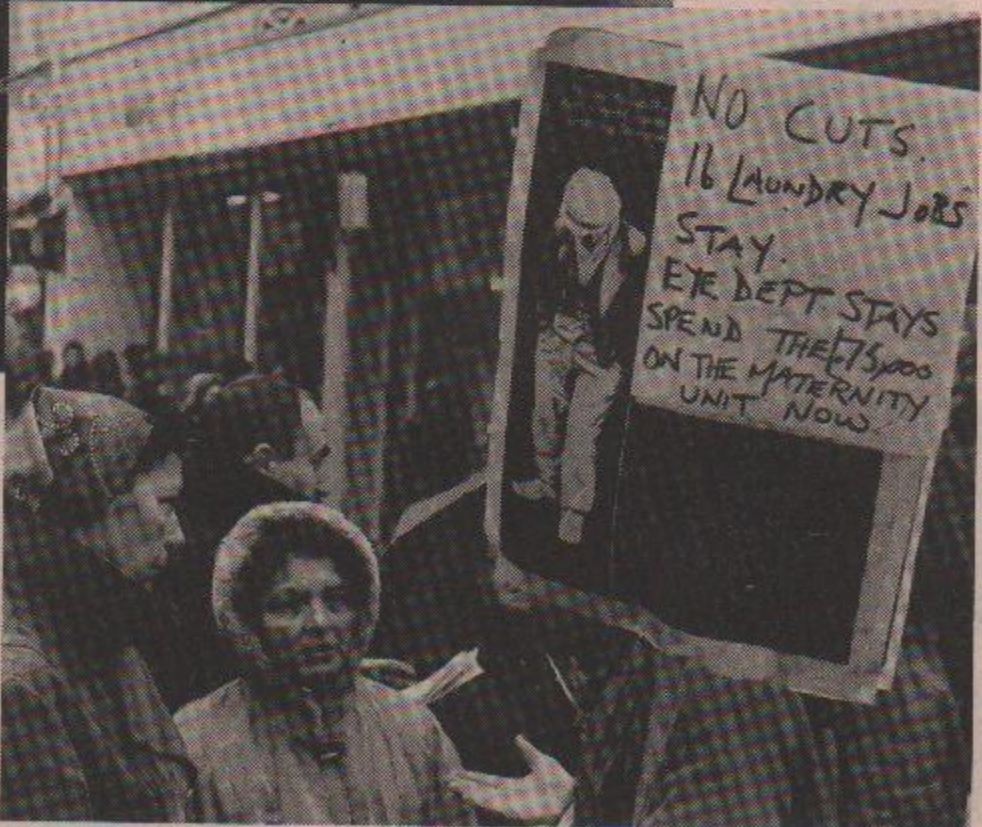 NO CUTS.
16 LAUNDRY JOBS
STAY.
EYE DEPT STAYS
SPEND THE £75,000
ON THE MATERNITY
UNIT NOW